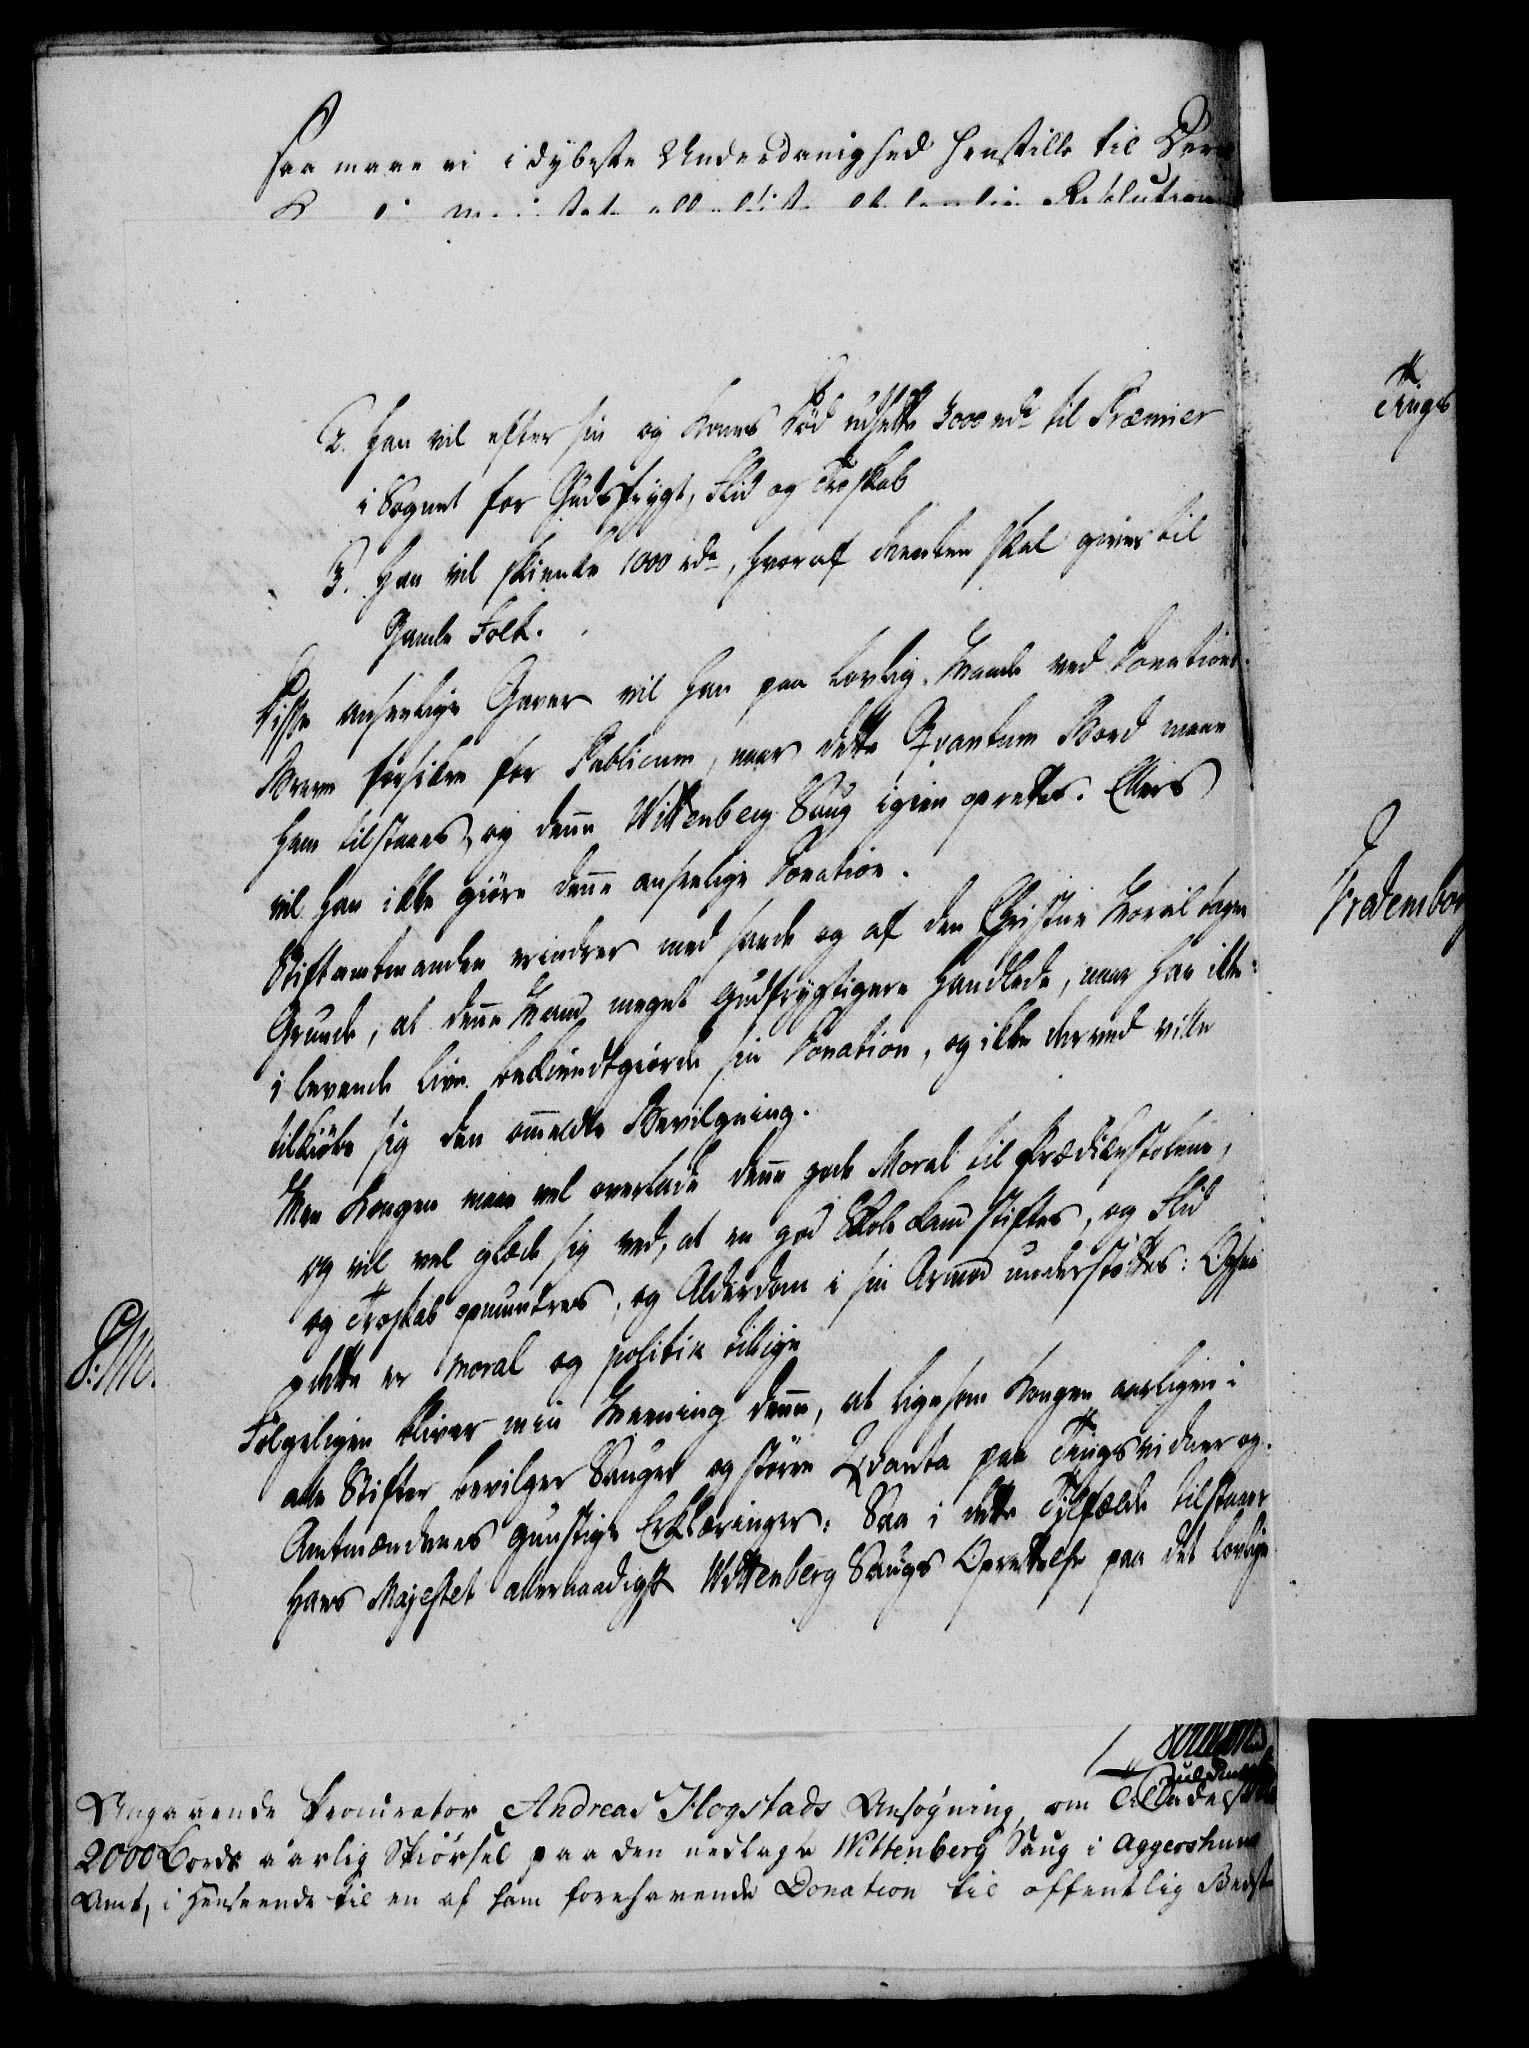 saa maae vi i dybeste Underdanighed henstille til Deres
Resolution
2. Han vil efter sin og Kones Död udsette 3000 rdr til Præmier
i Sognet for Gudsfrygt, Flid og Troskab
3. Han vil skienke 1000 rdr, hvoraf Renten skal gives til
Gamle Folk.
Disse anseelige Gaver vil han paa lovlig Maade ved Donations
Breve forsikre for Publicum, naar dette Qvantum Bord maae
ham tilstaaes, og denne Wittenberg Saug igien oprettes. Ellers
vil han ikke giöre denne anseelige Donation.
Stiftamtmanden erindrer med sande og af den Christne Moral tagne
Grunde, at denne Mand meget gudfrygtigere handlede, naar han ikke
i levende Live bekiendtgiorde sin Donation, og ikke derved ville
tilkiöbe sig den ommeldte Bevilgning.
Men Kongen maae vel overlade denne gode Moral til Prædikestolene,
og vil vel glæde sig ved, at en god Skole Fund stiftes, og Flid
og Troskab opmuntres, og Alderdom i sin Armod understöttes: Ogsaa
dette er Moral og politik tillige
Fölgeligen bliver min Meening denne, at ligesom Kongen aarligen i
alle Stifter bevilger Sauger og större Qvanta paa Tingsvidner og
Amtmændenes gunstige Erklæringer: Saa i dette Tilfælde tilstaaer
Hans Majestet allernaadigst Wittenberg Saugs Oprettelse paa det lovlige
Tings
Fradensborg
P. M.
Angaaende Procurator Andreas Hogstads Ansögning, om Tilladelse til
2000 Bords aarlig Skiörsel paa den nedlagte Wittenberg Saug i Aggershuus
Amt, i Henseende til en af ham forehavende Donation til offentlig Bedste